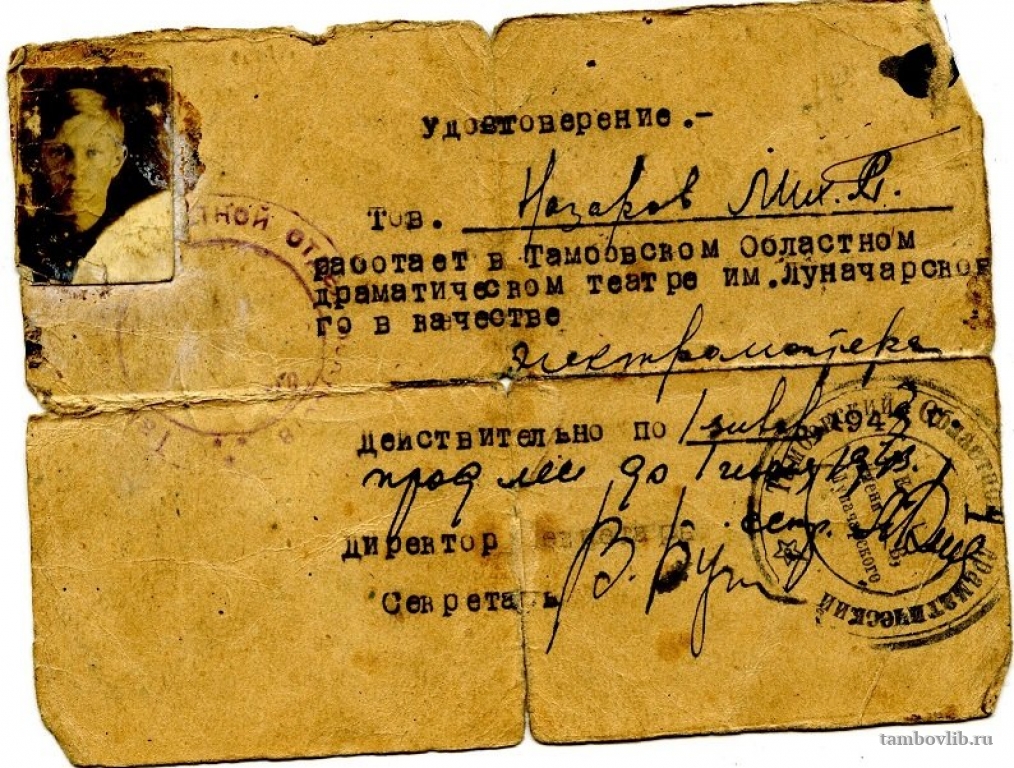 Удостоверение.-
Тов. Назаров Мих. П.
работает в Тамбовском Областном
драматическом театре им.Луначарско
го в качестве
электромонтера
Действительно по 1 января 1943 г.
до 1 1943.
Директор
Секретарь
дной отдел
Тамбовский Областной Драматический
имени
Луначарского
tambovlib.ru